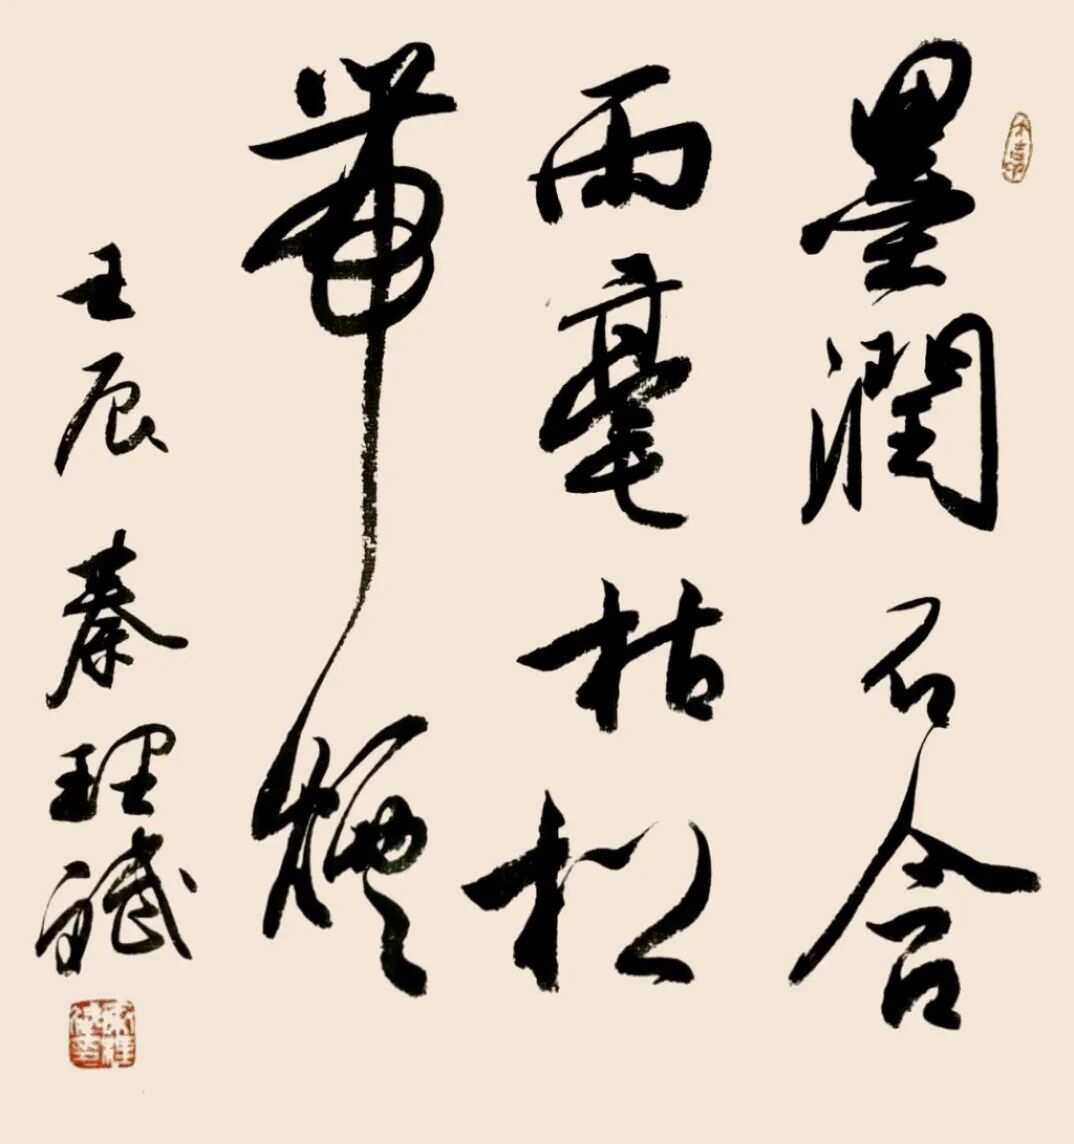 墨潤石含
雨毫枯松
帶煙
壬辰 秦理斌